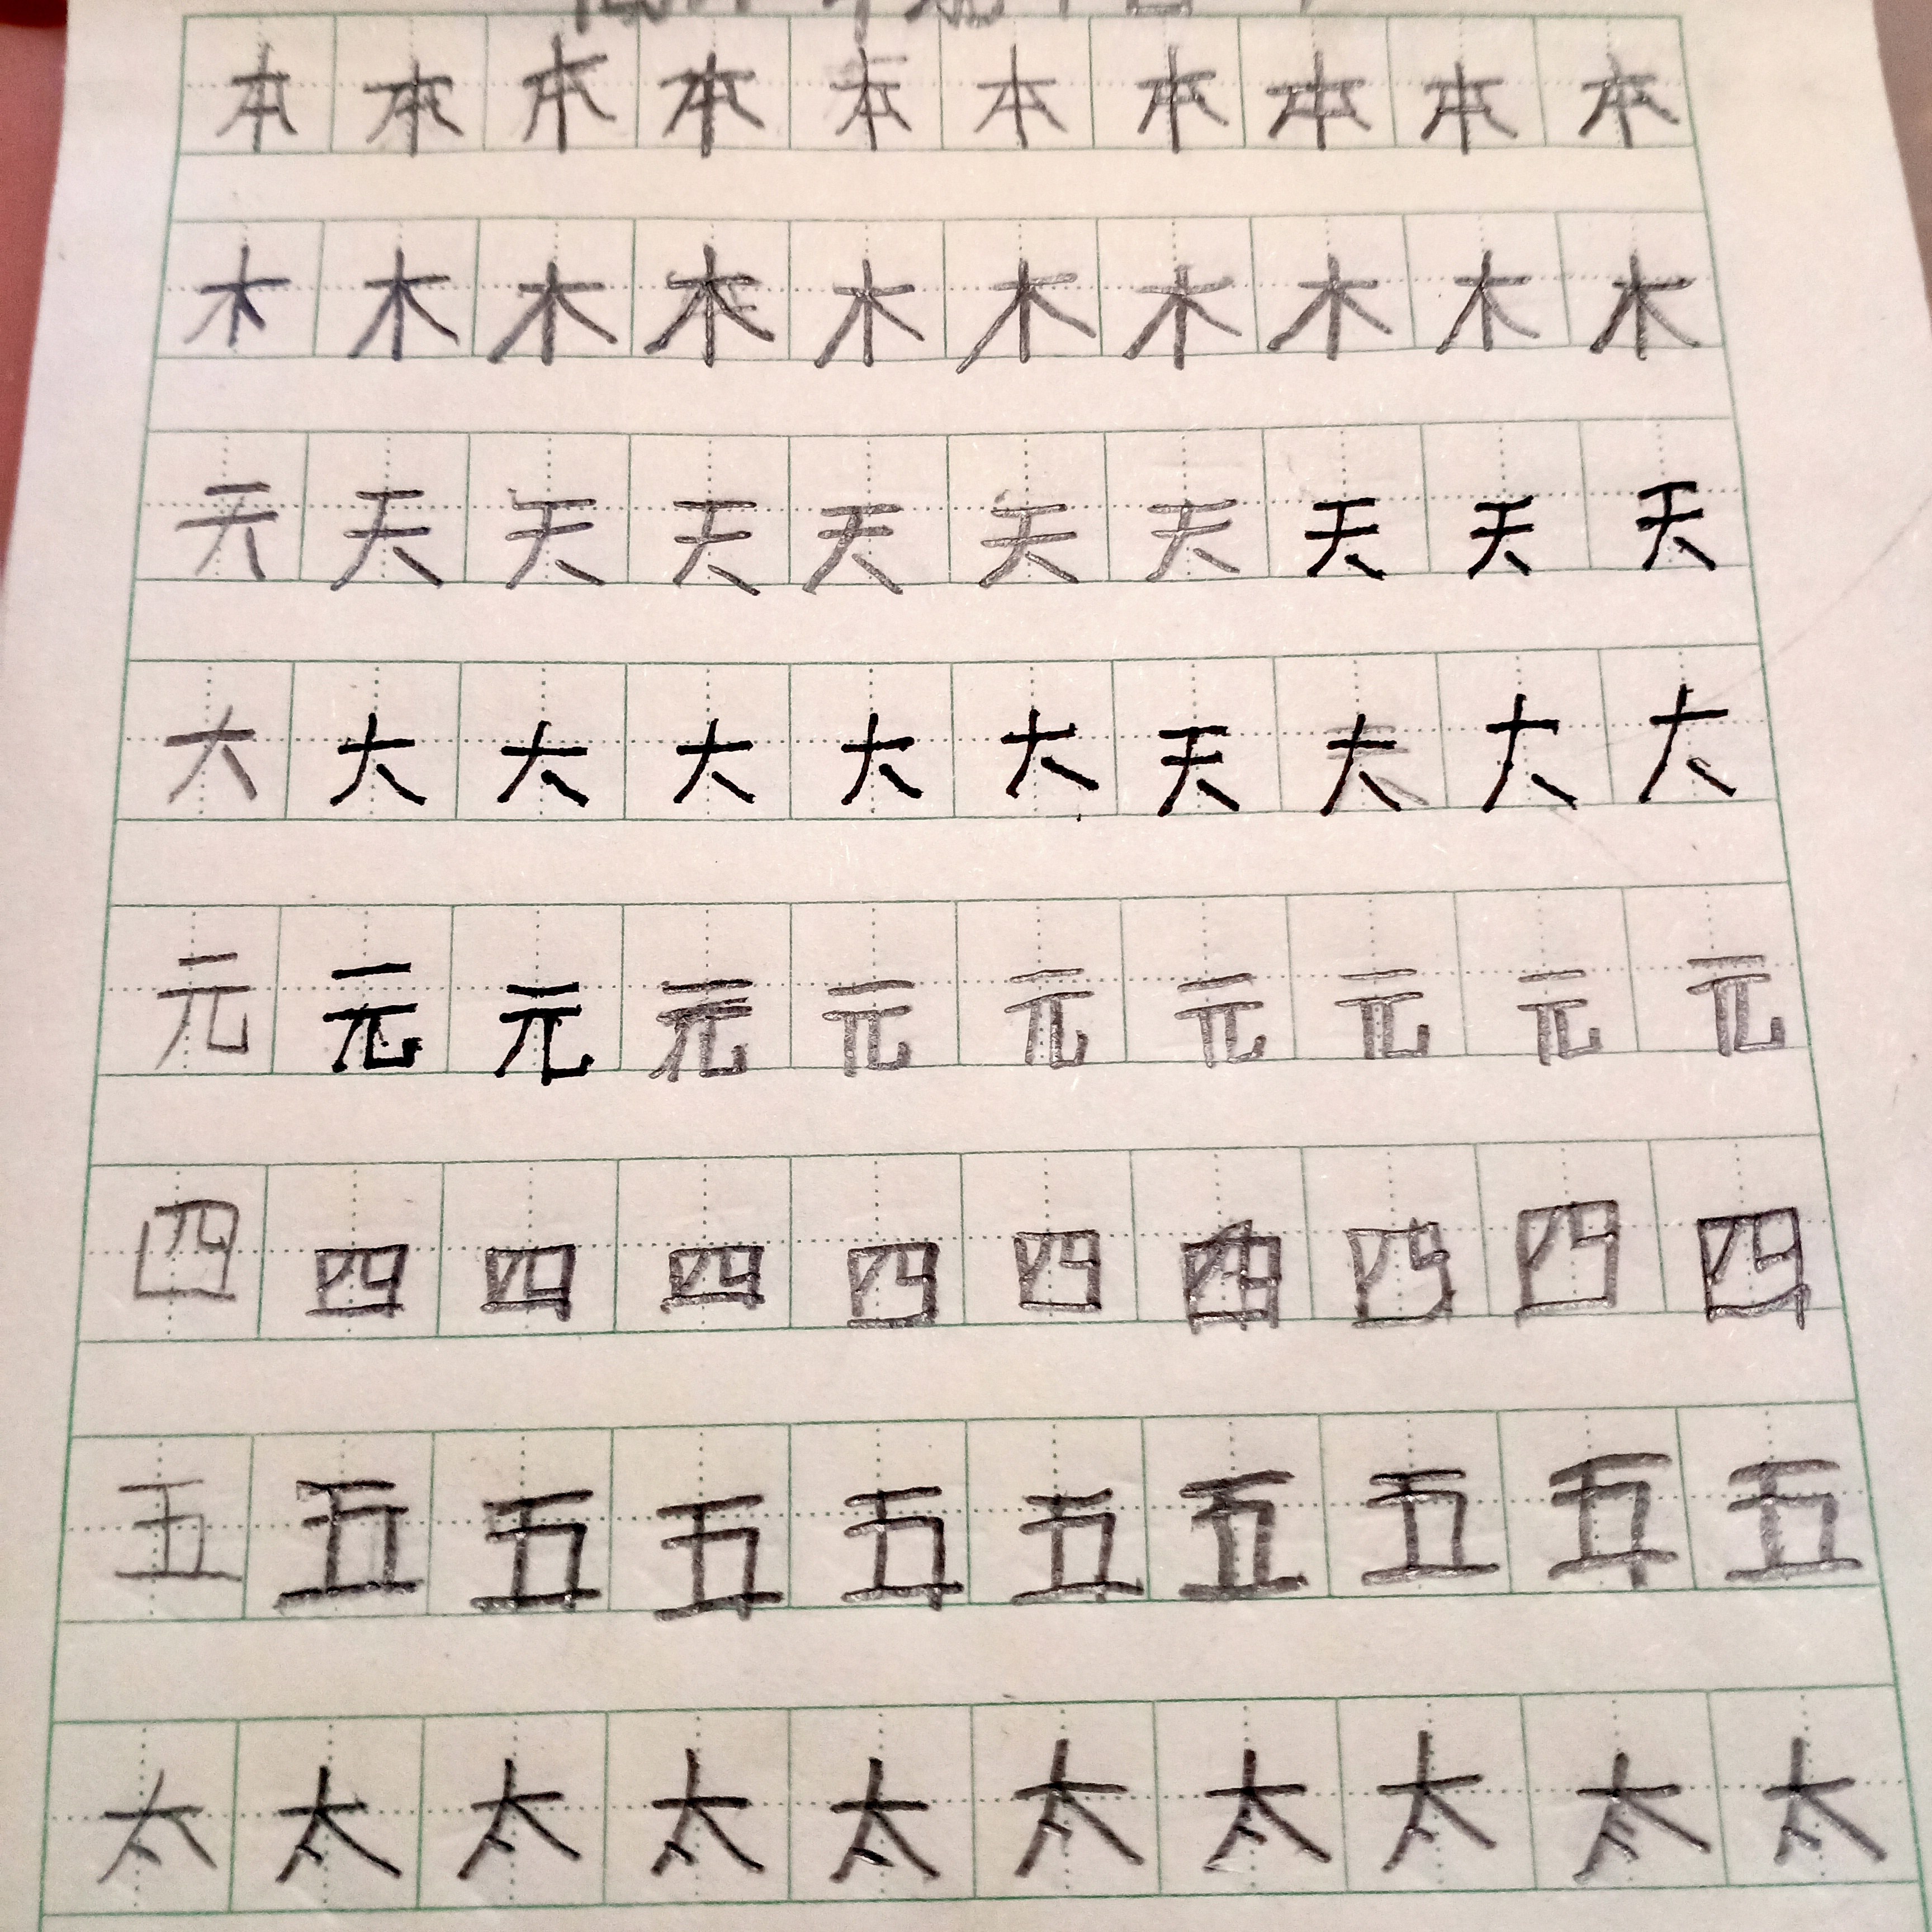 本本本本本本本本本本
木木木木木木木木木木
天天天天天天天天天天
大大大大大大天大大大
元元元元元元元元元元
四四四四四四四四四四
五五五五五五五五五五
太太太太太太太太太太